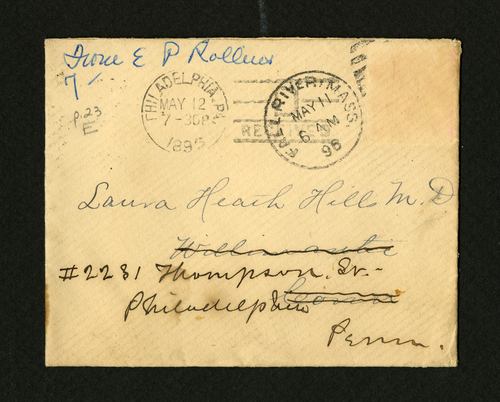 From E P Rollins
7/-
p.23
E
PHILADELPHIA, PA.
MAY 12
7-30P
1895
REC
FALL RIVER, MASS.
MAY 11
6 AM
96
Laura Heath Hills M.D
Willimantic
#2281 Thompson. St.-
Philadelphia Conn
Penn.